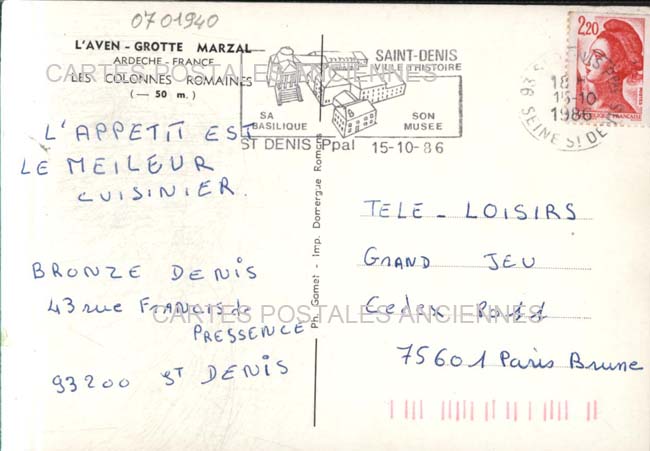 0701940
L'AVEN - GROTTE MARZAL
ARDECHE - FRANCE
LES COLONNES ROMAINES
(— 50 m.)
SAINT-DENIS
VILLE D'HISTOIRE
SA
BASILIQUE
SON
MUSEE
ST DENIS Ppal 15-10-86
2,20
18 H
15-10
1986
SEINE ST DENIS
93
CARTES POSTALES ANCIENNES
L'APPETIT EST
LE MEILEUR
CUISINIER.
BRONZE DENIS
43 rue FRANCIS de
PRESSENCE
93200 ST DENIS
Ph. Gamet - Imp. Domergue Romans
TELE - LOISIRS
GRAND JEU
Cedex
75601 Paris Brune
CARTES POSTALES ANCIENNES